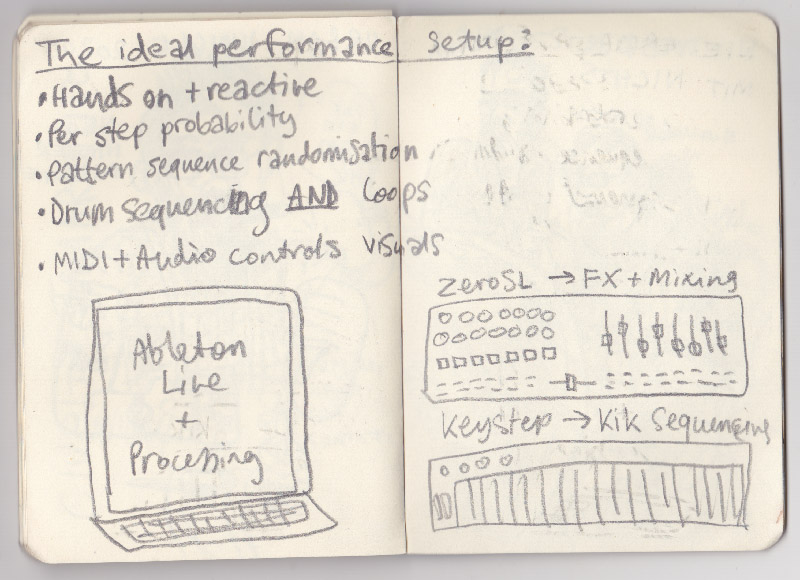 The ideal performance setup?
• Hands on + reactive
• Per step probability
• Pattern sequence randomisation
• Drum sequencing AND loops
• MIDI + Audio controls visuals
Ableton
Live
+
Processing
ZeroSL → FX + Mixing
Keystep → Kik Sequencing